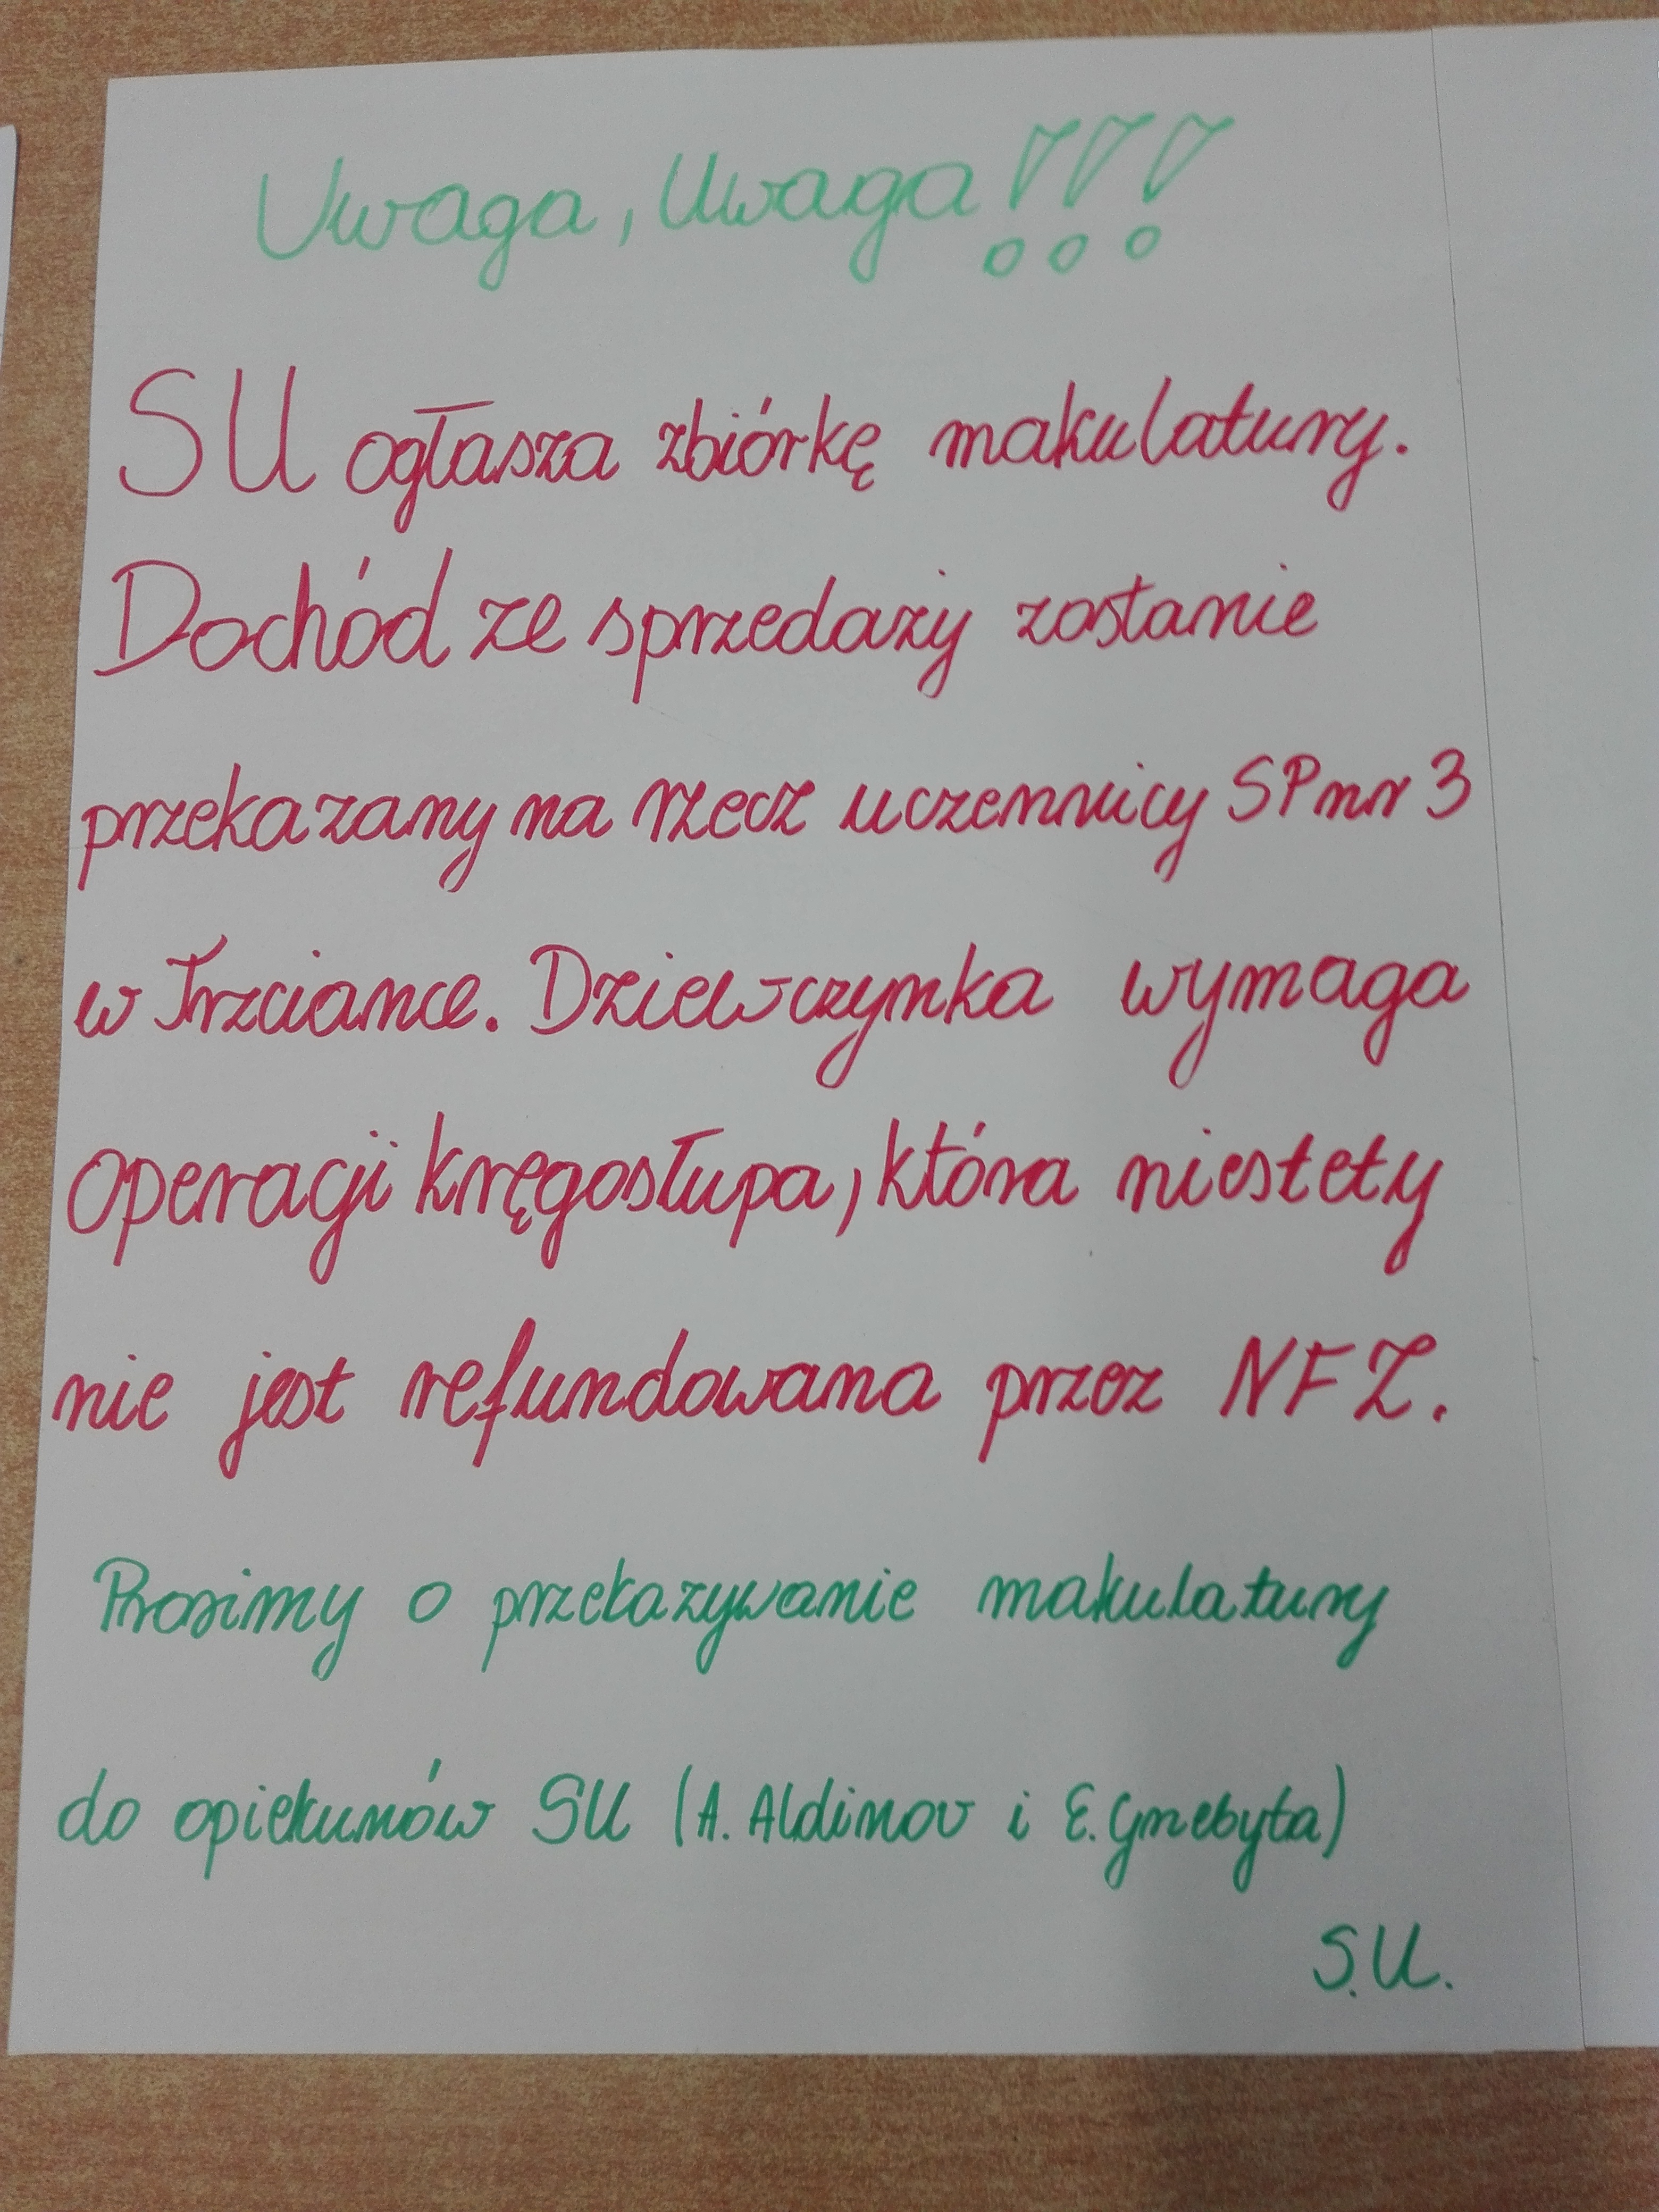 Uwaga, Uwaga!!!
SU ogłasza zbiórkę makulatury.
Dochód ze sprzedaży zostanie
przekazany na rzecz uczennicy SP nr 3
w Trzciance. Dziewczynka wymaga
operacji kręgosłupa, która niestety
nie jest refundowana przez NFZ.
Prosimy o przekazywanie makulatury
do opiekunów SU (A. Aldinov i E. Gnebyta)
S.U.